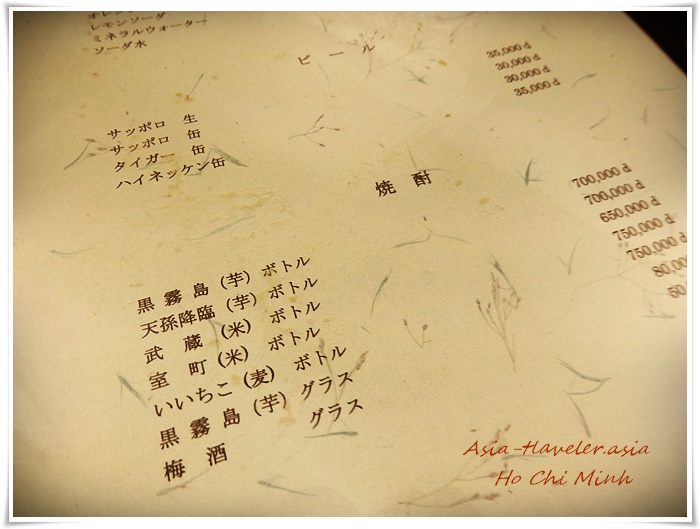 レモンソーダ
ミネラルウォーター
ソーダ水
ビール
サッポロ 生 35,000 đ
サッポロ 缶 30,000 đ
タイガー 缶 30,000 đ
ハイネッケン缶 35,000 đ
焼 酎
黒 霧 島 (芋) ボトル 700,000 đ
天孫降臨 (芋) ボトル 700,000 đ
武 蔵 (米) ボトル 650,000 đ
室 町 (米) ボトル 750,000 đ
いいちこ (麦) ボトル 750,000 đ
黒 霧 島 (芋) グラス 80,00
梅 酒 グラス
Asia-Haveler.asia
Ho Chi Minh